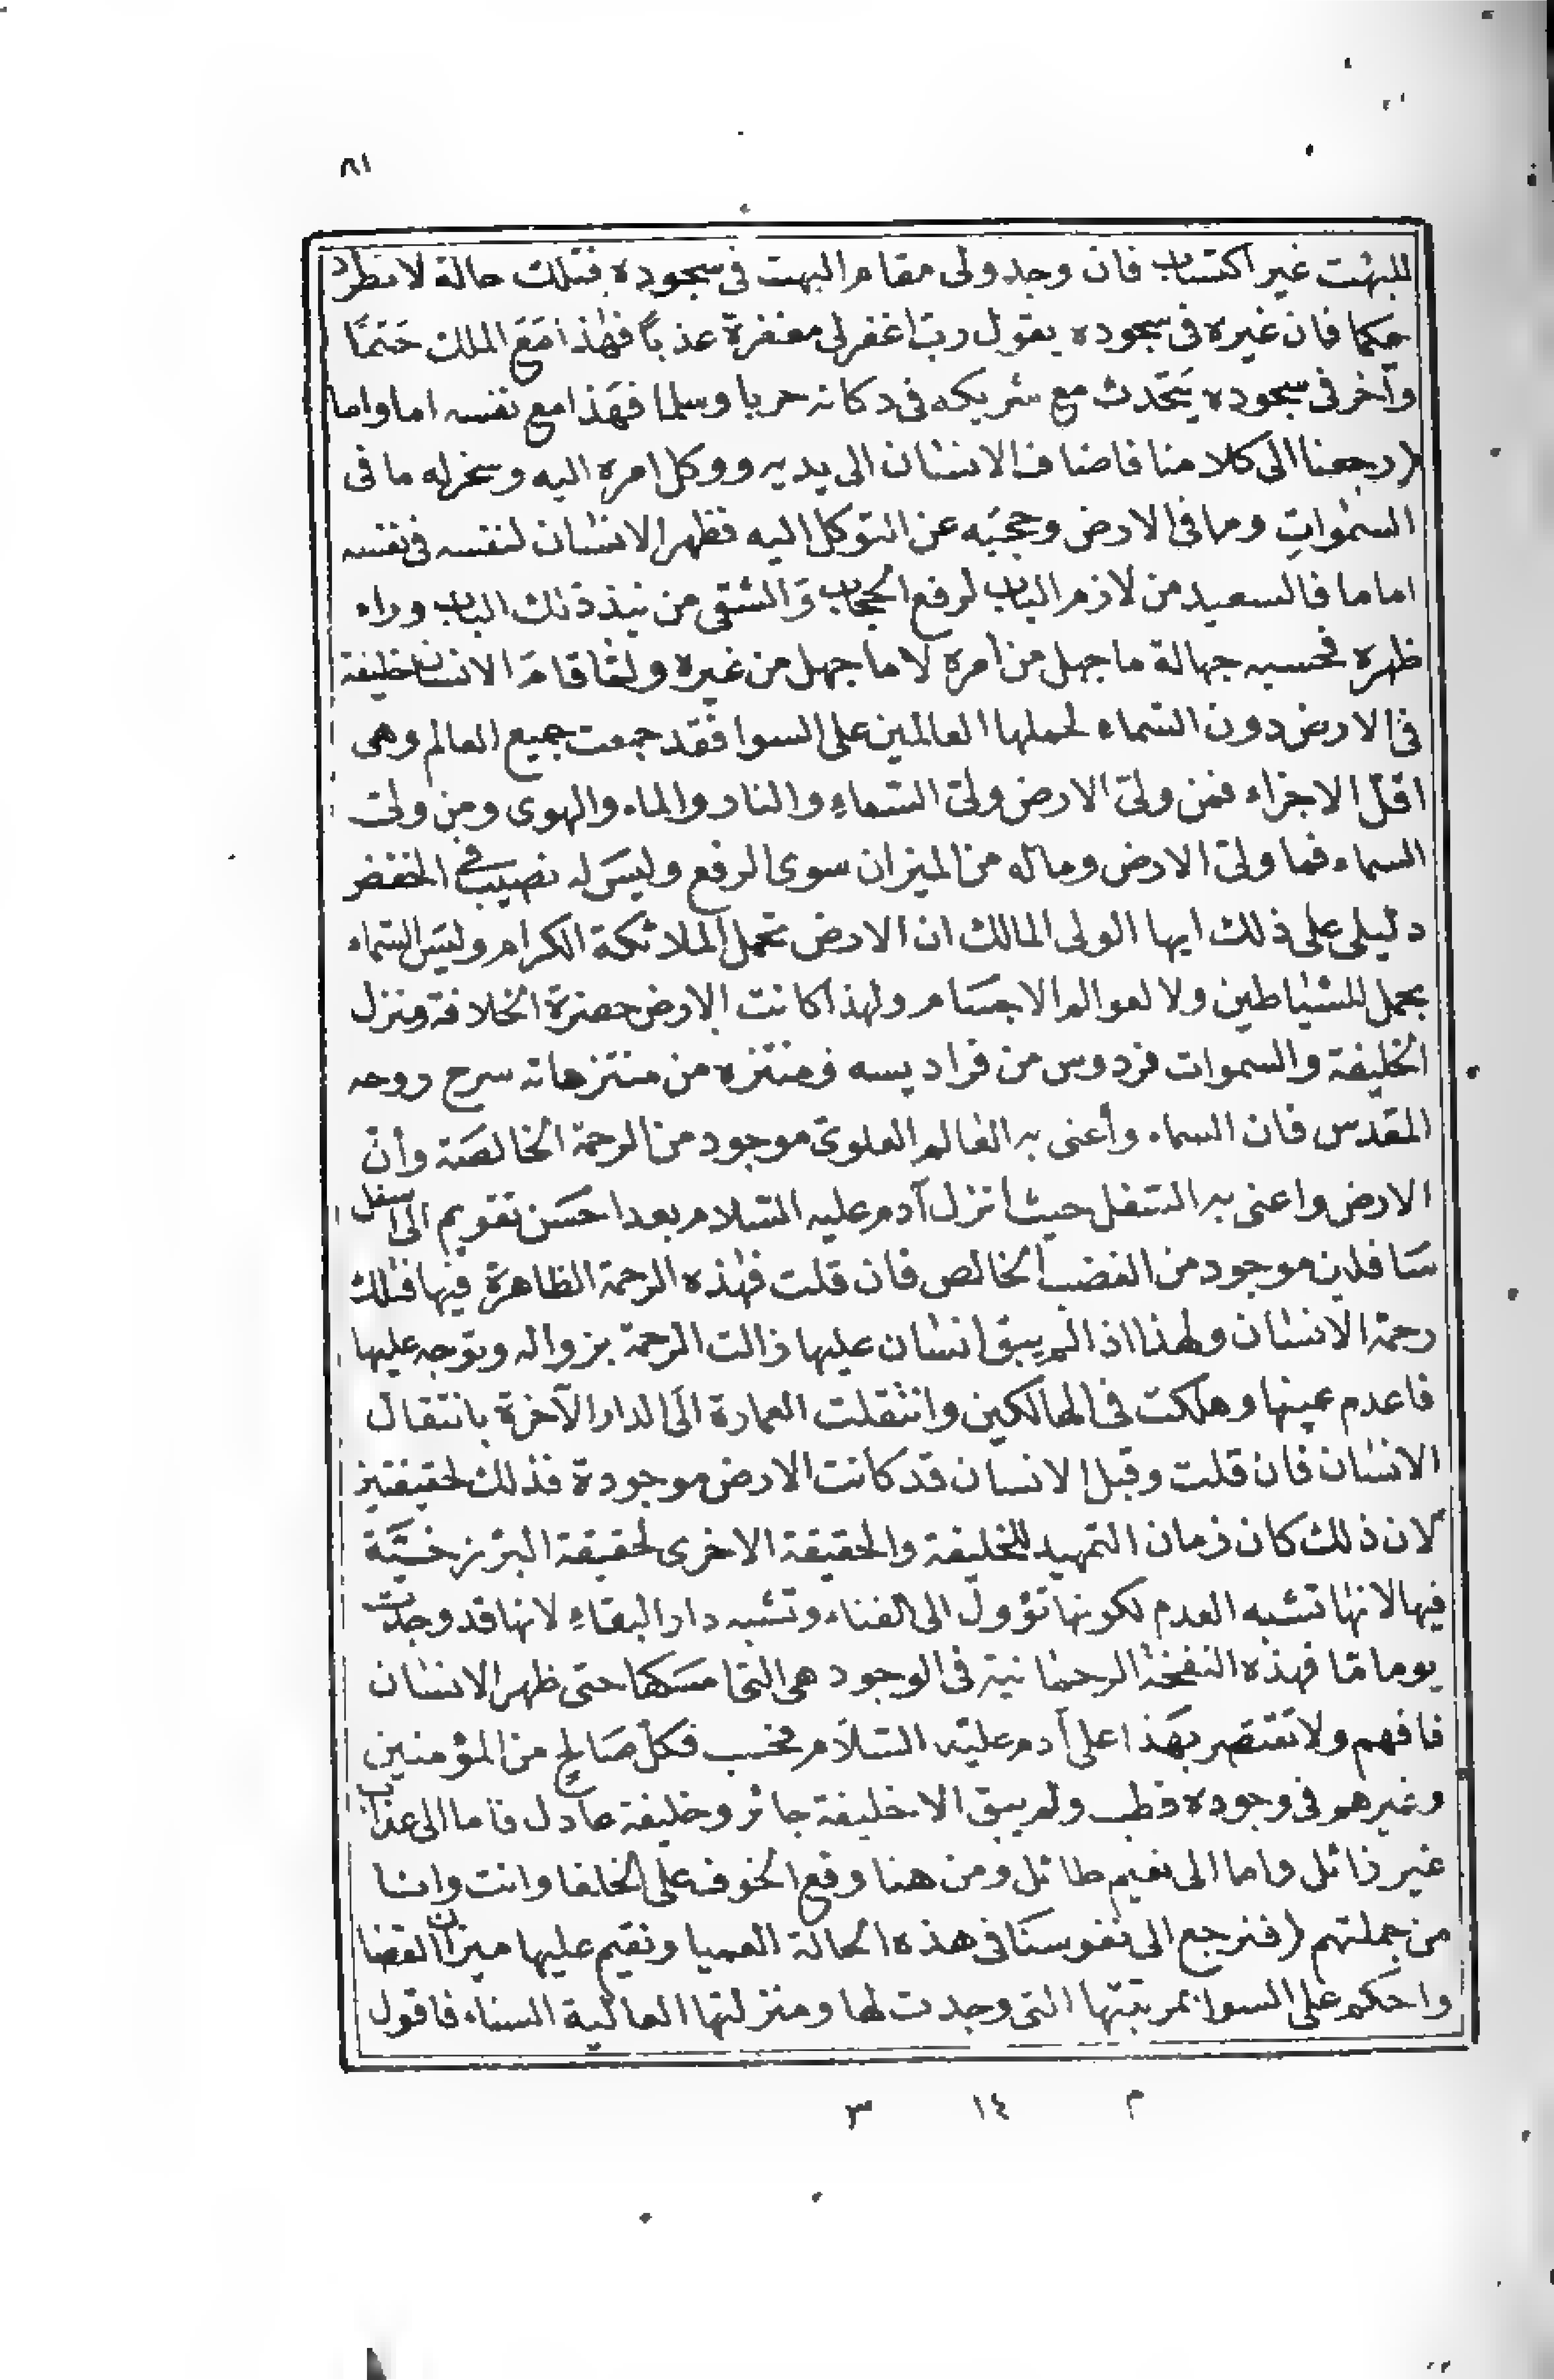 ٨١
للبهت غير اكتساب فان وجد ولى مقام البهت فى سجوده فتلك حالة لا تطرد
حكما فان غيره فى سجوده يقول رب اغفر لى مغفرة عذبًا فهٰذا مَعَ الملك حَتمًا
وآخر فى سجوده يَتَحّدث مع شريكه فى دكانه حربا وسلما فهَذا مع نفسه اما واما
(رجعنا الى كلامنا فاضاف الانسان الى يديه ووكل امره اليه وسخر له ما فى
السمٰواتِ وما فى الارض وحجبَه عن التوكل اليه فظهر الانسٰان لنفسه فى نفسه
اماما فالسعيد من لازم الباب لرفع الحجاب وَالشقى من نبذ ذلك الباب وراء
ظهره فحسبه جهالة ما جهل من أمره لا ما جهل من غيره ولقا قامَ الانسان خليفة
فى الارض دون السَماء لحملها العالمين على السوا فقد جمعت جميع العالم وهى
اقلّ الاجزاء فمن ولىّ الارض ولىّ السَماءِ والنار والماء والهوى ومن ولىّ
السماء فما ولىّ الارض وماله من الميزان سوى الرفع وليسَ له نصيب فى الخفض
دليلى على ذلك ايها الولى المالك ان الارض تحمل الملائكة الكرام وليسَ السَماء
بحمل للشيٰاطين ولا لعوالم الاجسَام ولهذا كانت الارض حضرة الخلافة ومنزل
الخليفة والسموات فردوس من فراديسه ومنتزه من منتزهاته سرح روحه
المقدس فان السماء وأعنى به العالم العلوىّ موجود من الرحمة الخالصَة وأنّ
الارض واعنى به السَفل حيث أنزل آدم عليه السَلام بعد احسَن تقويم الى اسفل
سَافلين موجود من الغضب الخالص فان قلت فهٰذه الرحمة الظاهرة فيها فتلك
رحمة الانسٰان ولهٰذا اذا لم يبق انسٰان عليها زالت الرحمة بزواله وتوّجه عليها
فاعدم عينها وهلكت فى الهالكين وانتقلت العمارة الَى الدار الآخرة بانتقال
الانسٰان فان قلت وقبل الانسان قد كانت الارض موجودة فذلك لحقيقتين
لان ذلك كان زمان التمهيد للخليفة والحقيقة الاخرى لحقيقة البرزخيَّة
فيها لانهٰا تشبه العدم لكونها تؤول الى الفناء وتشبه دار البقاءِ لانها قد وجدت
يوما مّا فهذه النفخة الرحمٰانية فى الوجود هى التى امسَكها حتى ظهر الانسٰان
فافهم ولا تَقتصر بهَذا على آدم عليَه السَلَام فحسب فكلّ صَالح من المؤمنين
وغيرهم فى وجوده قطب ولم يبق الا خليفة جائر وخليفة عادل فاما الى عذاب
غير زائل واما الى نعيم طائل ومن هنا وقع الخوف على الخلفا وانت وانا
من جملتهم (فنرجع الى نفوسنَا فى هذه الحالة العميا ونقيم عليها ميزان القضا
واحكم على السوا بمرتبتها التى وجدت لها ومنزلتها العالية السناء فاقول
م ١٤ ٣